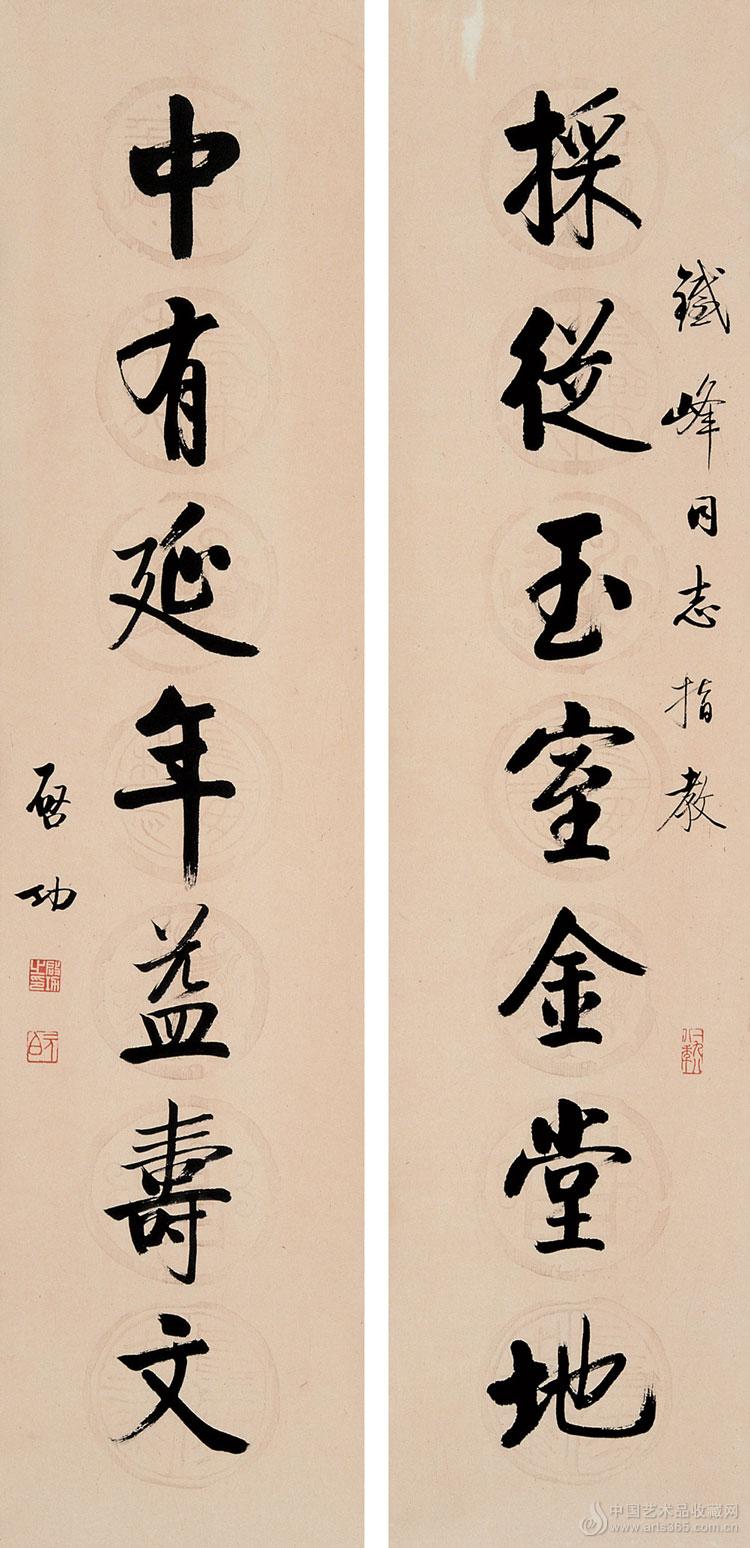 鐵峰同志指教
採從玉室金堂地
中有延年益壽文
啓功
中国艺术品收藏网
www.arts365.com.cn